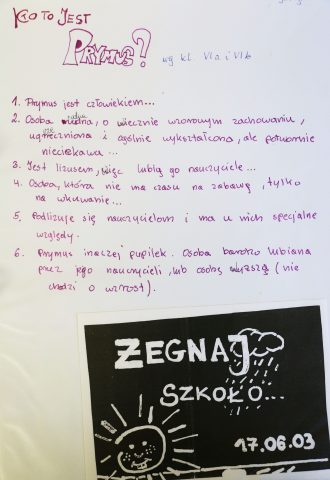 KTO TO JEST
PRYMUS? wg kl. VIa i VIb
1. Prymus jest człowiekiem...
2. Osoba nudna, o wiecznie wzorowym zachowaniu,
ugrzeczniona i ogólnie wykształcona, ale potwornie
nieciekawa...
3. Jest lizusem, więc lubią go nauczyciele...
4. Osoba, która nie ma czasu na zabawę, tylko
na wkuwanie...
5. Podlizuje się nauczycielom i ma u nich specjalne
względy.
6. Prymus inaczej pupilek. Osoba bardzo lubiana
przez jego nauczycieli, lub osobę wyższą (nie
chodzi o wzrost).
ŻEGNAJ
SZKOŁO...
17.06.03